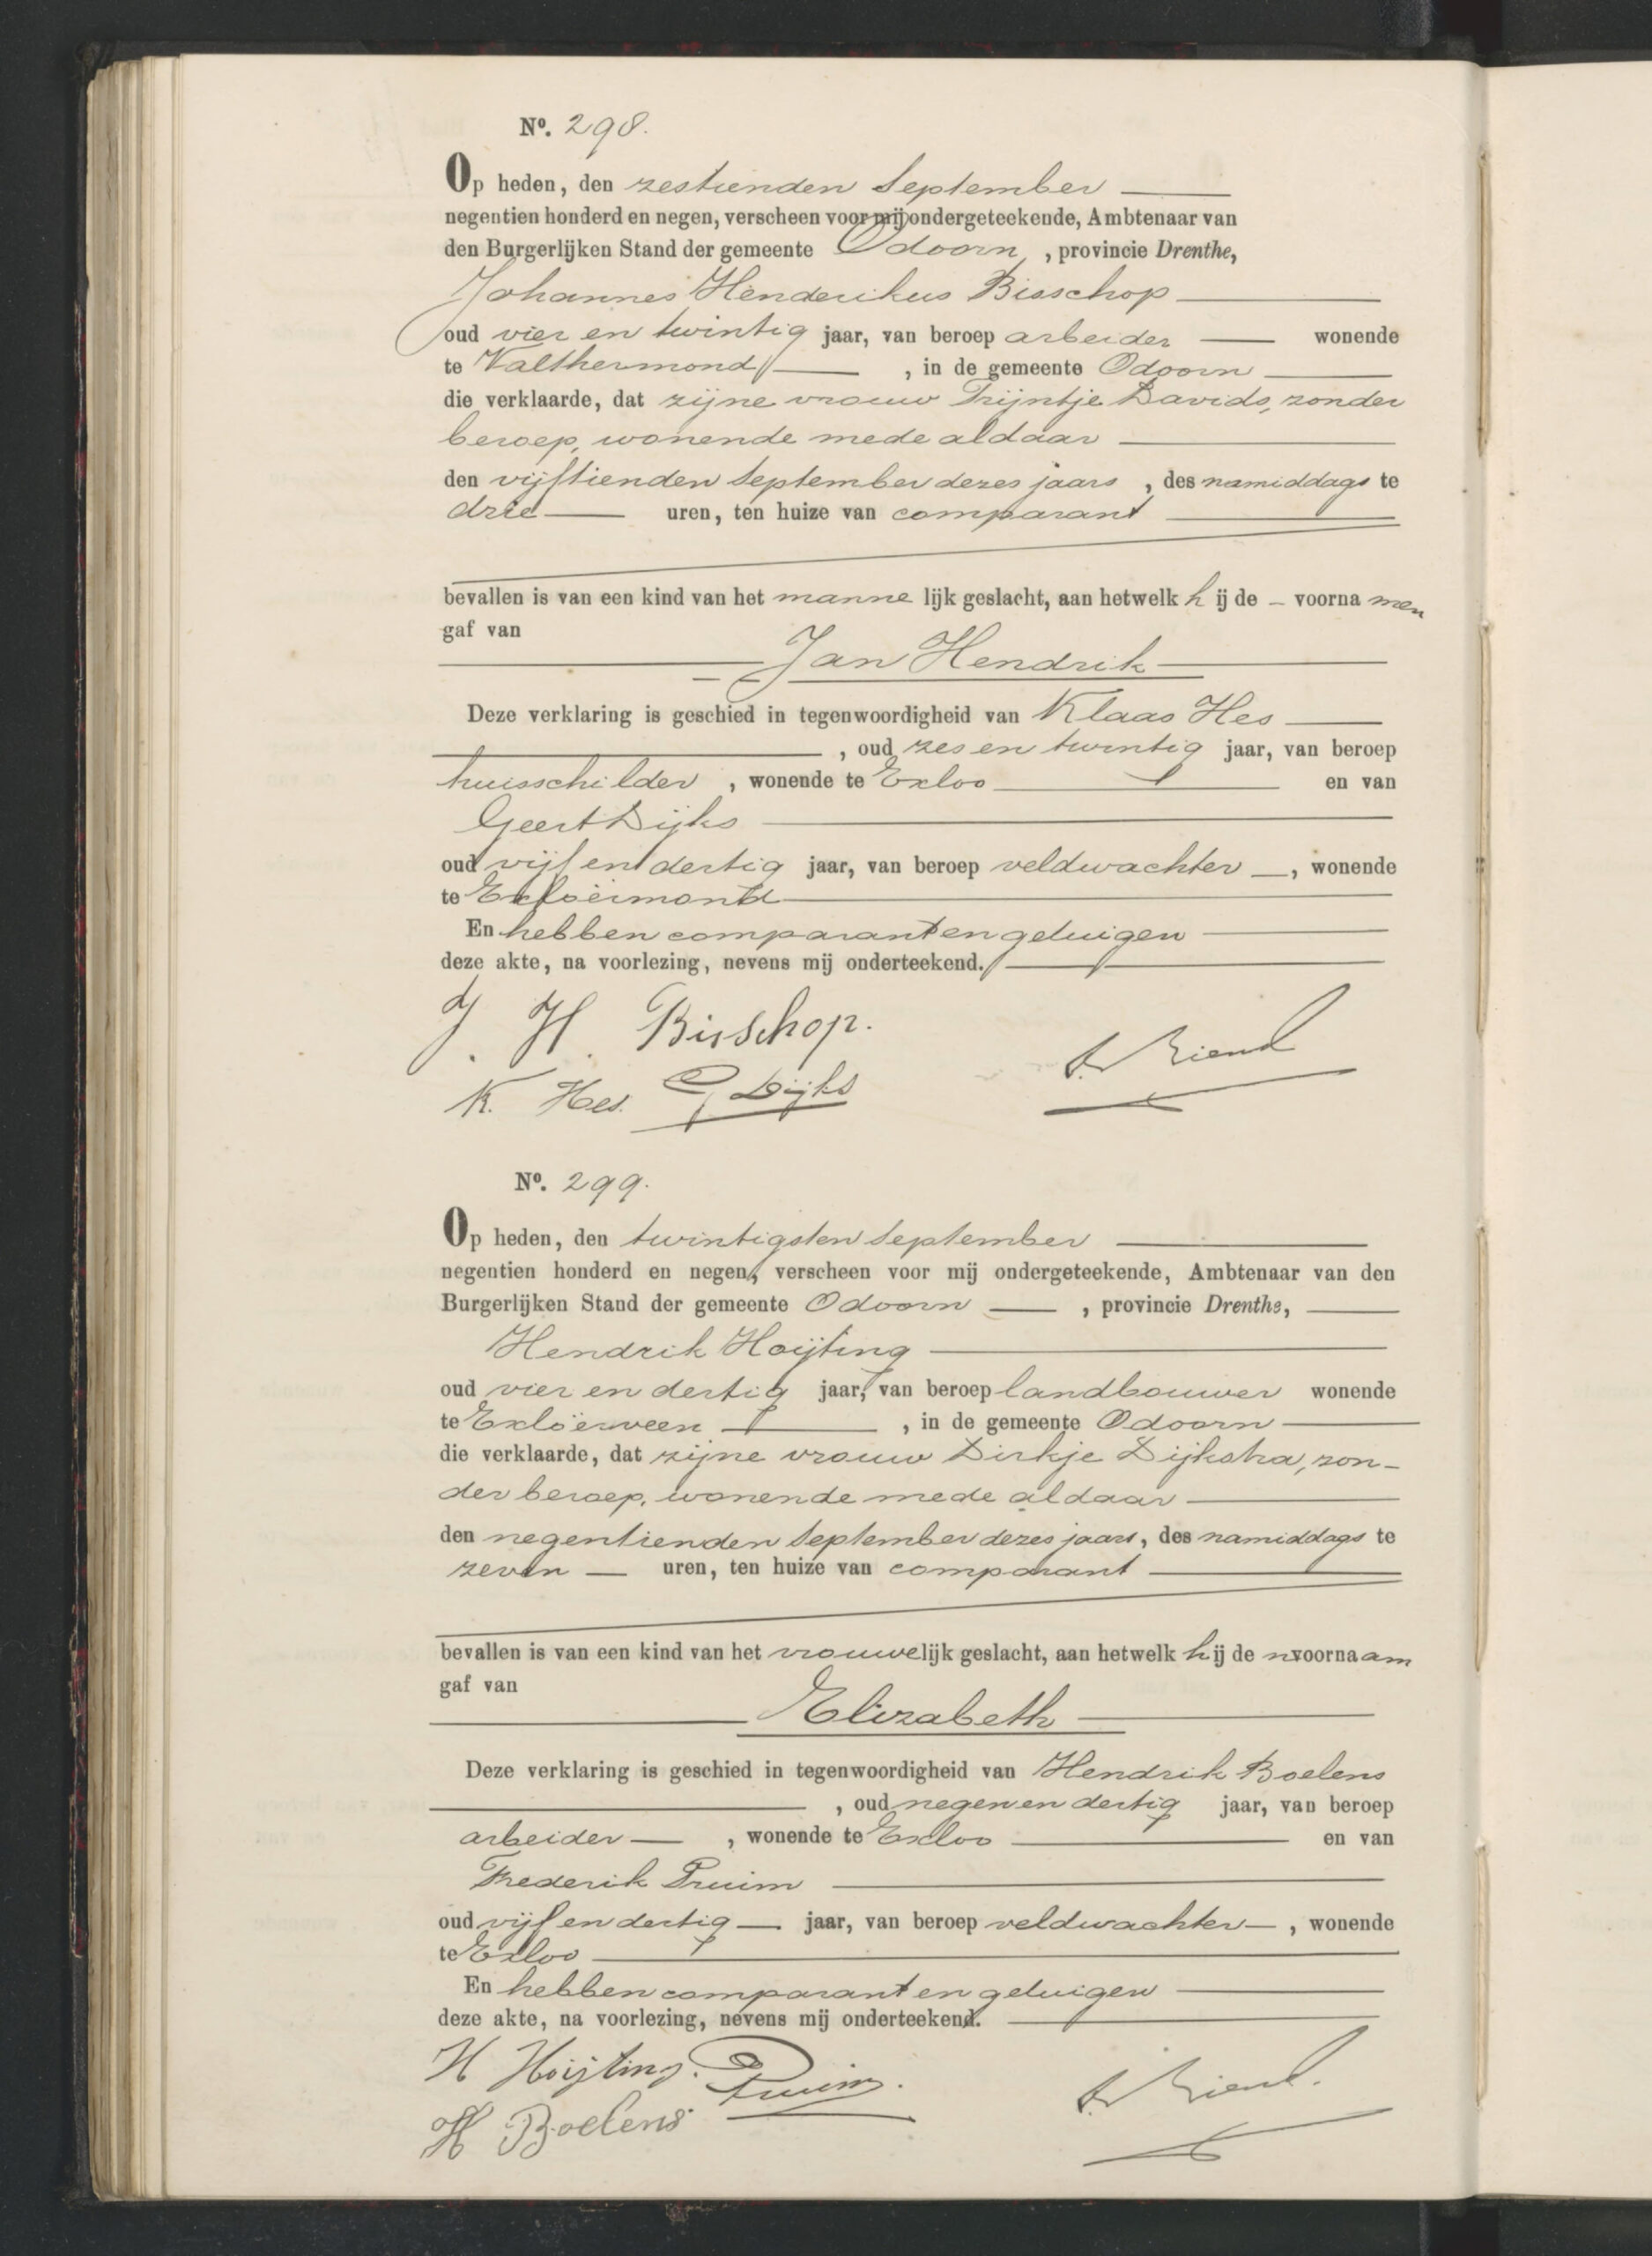 Nº. 298.
Op heden, den zestienden September
negentien honderd en negen, verscheen voor mij ondergeteekende, Ambtenaar van
den Burgerlijken Stand der gemeente Odoorn, provincie Drenthe,
Johannes Henderikus Bisschop
oud vier en twintig jaar, van beroep arbeider wonende
te Valthermond, in de gemeente Odoorn
die verklaarde, dat zijne vrouw Trijntje Davids, zonder
beroep, wonende mede aldaar
den vijftienden September dezes jaars, des namiddags te
drie uren, ten huize van comparant
bevallen is van een kind van het mannelijk geslacht, aan hetwelk hij de voornamen
gaf van
Jan Hendrik
Deze verklaring is geschied in tegenwoordigheid van Klaas Hes
, oud zes en twintig jaar, van beroep
huisschilder, wonende te Exloo en van
Geert Dijks
oud vijf en dertig jaar, van beroep veldwachter, wonende
te Exloërmond
En hebben comparant en getuigen
deze akte, na voorlezing, nevens mij onderteekend.
J. H. Bisschop.
K. Hes. G Dijks
Nº. 299.
Op heden, den twintigsten September
negentien honderd en negen, verscheen voor mij ondergeteekende, Ambtenaar van den
Burgerlijken Stand der gemeente Odoorn, provincie Drenthe,
Hendrik Hoijting
oud vier en dertig jaar, van beroep landbouwer wonende
te Exloërveen, in de gemeente Odoorn
die verklaarde, dat zijne vrouw Dirkje Dijkstra, zon-
der beroep, wonende mede aldaar
den negentienden September dezes jaars, des namiddags te
zeven uren, ten huize van comparant
bevallen is van een kind van het vrouwelijk geslacht, aan hetwelk hij de n voornaam
gaf van
Elizabeth
Deze verklaring is geschied in tegenwoordigheid van Hendrik Boelens
, oud negen en dertig jaar, van beroep
arbeider, wonende te Exloo en van
Frederik Pruim
oud vijf en dertig jaar, van beroep veldwachter, wonende
te Exloo
En hebben comparant en getuigen
deze akte, na voorlezing, nevens mij onderteekend.
H Hoijting. Pruim.
H Boelens